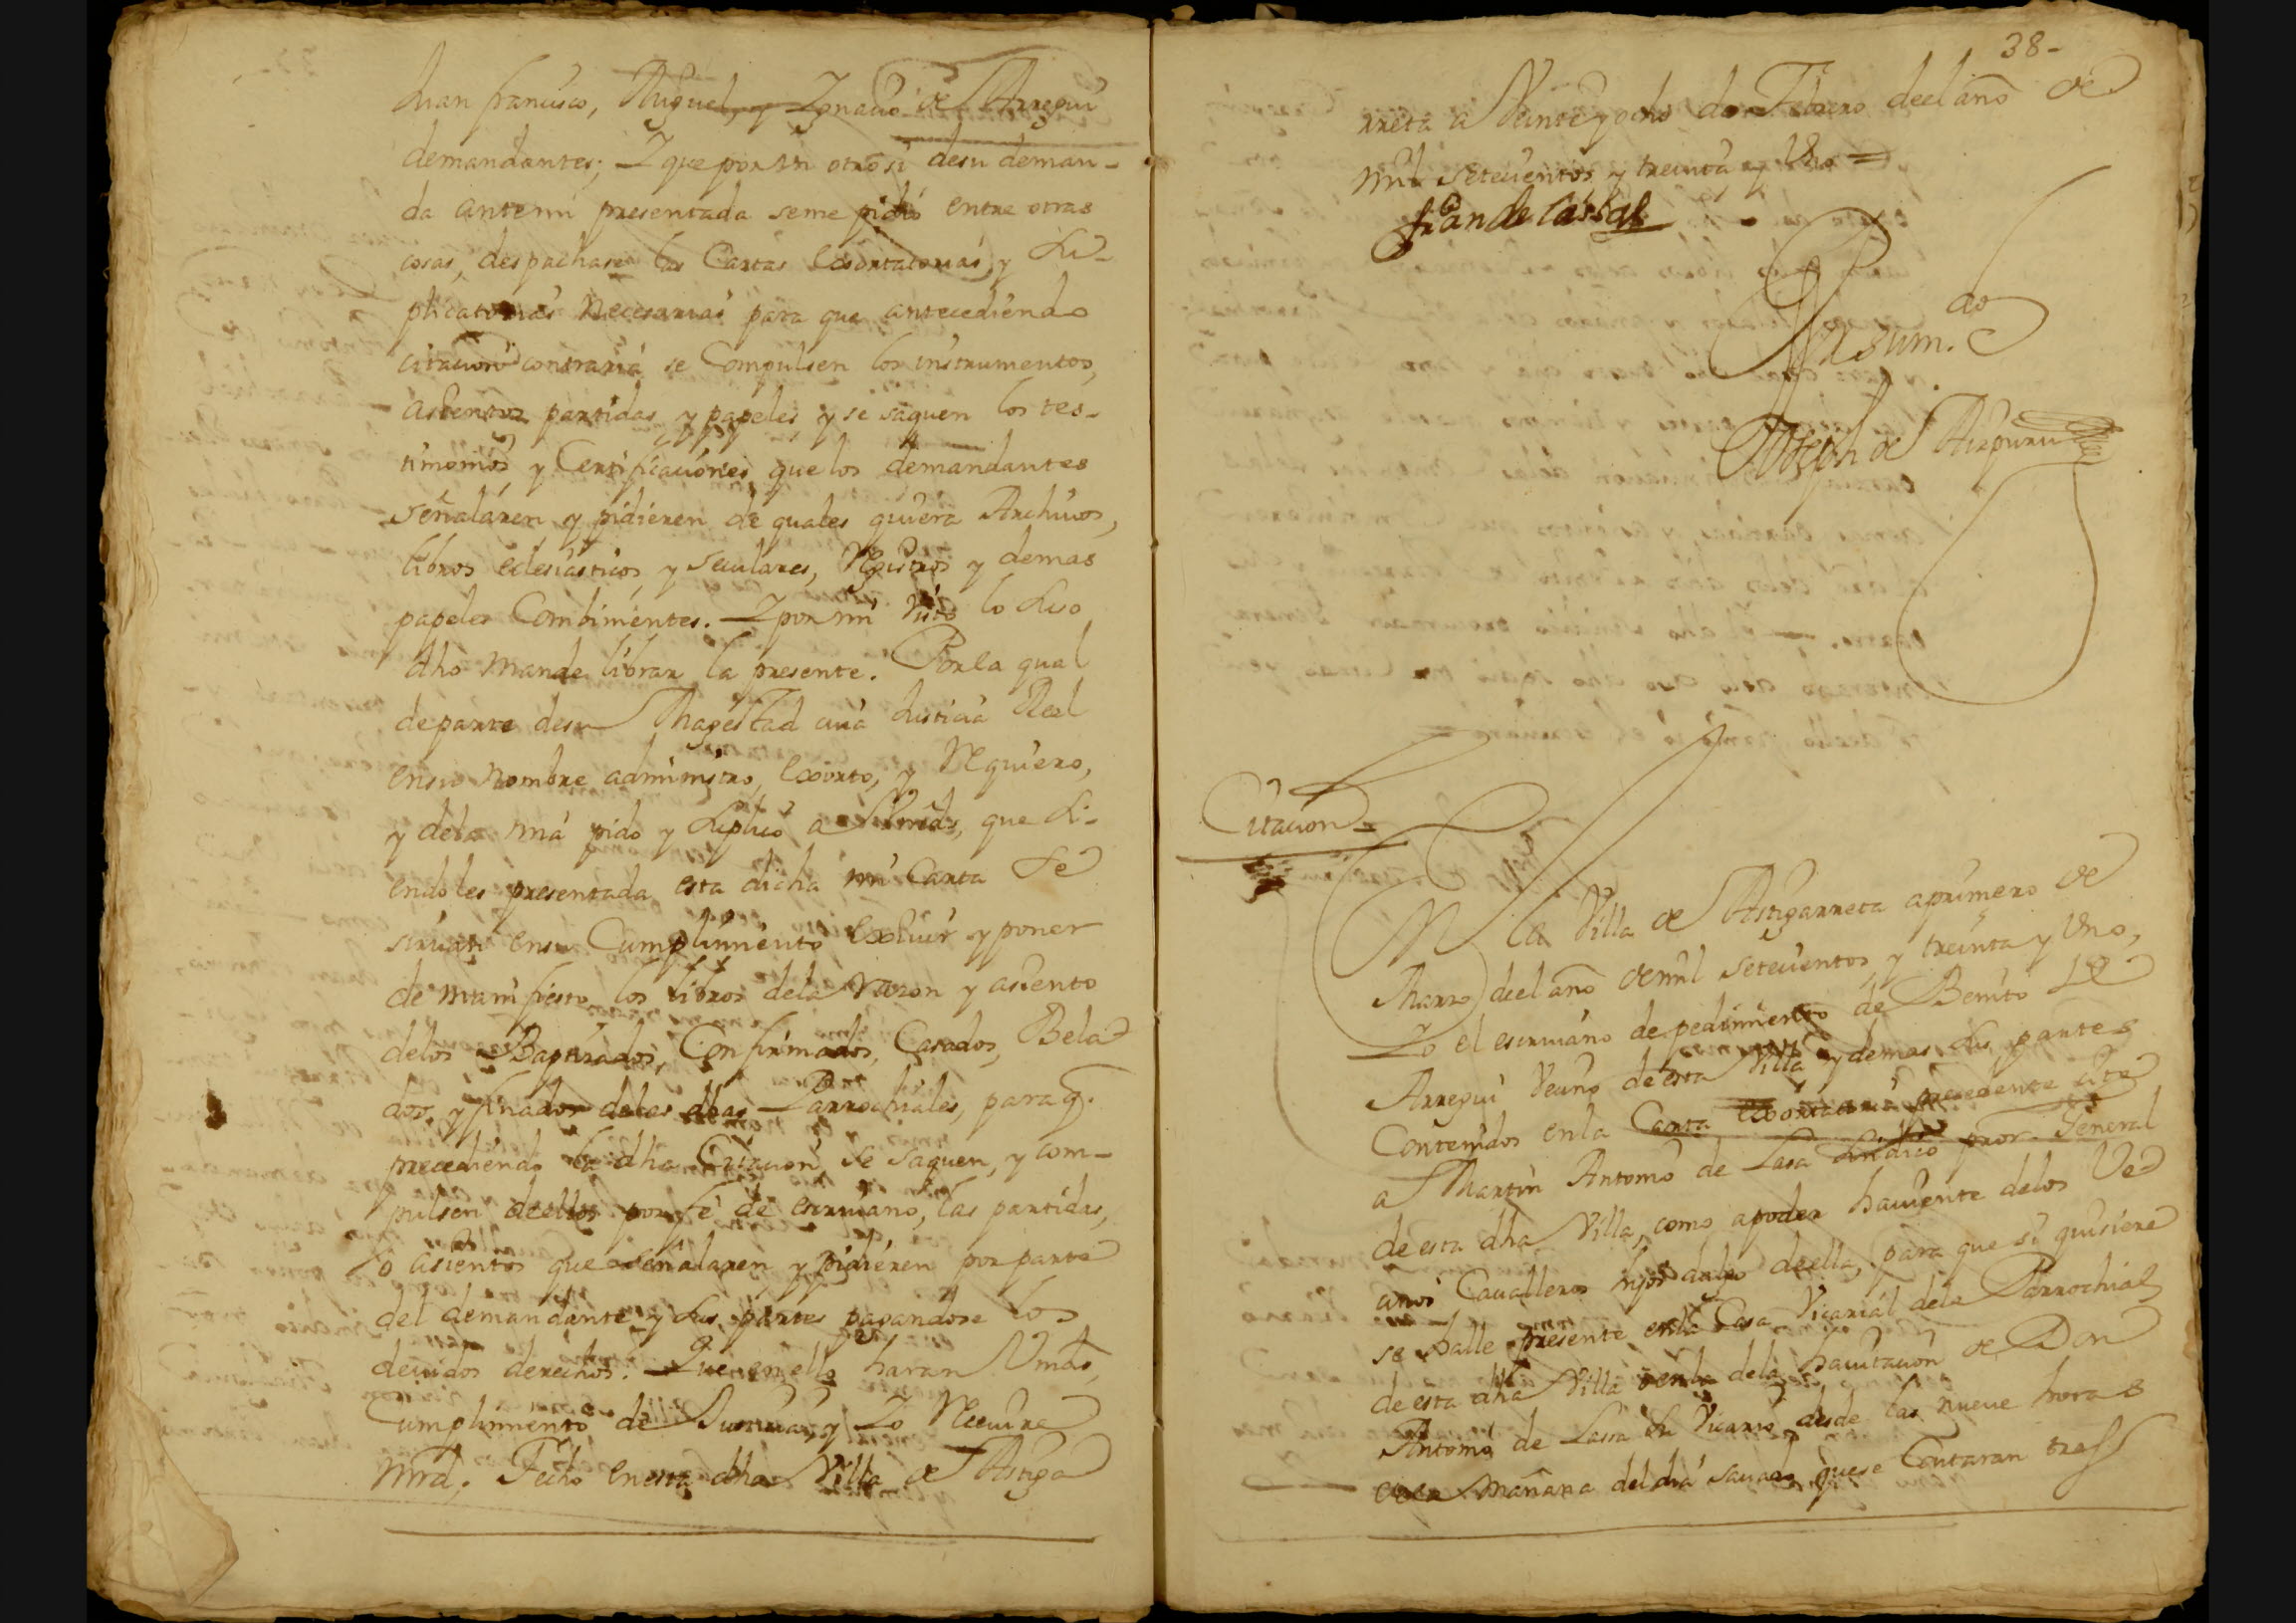 Juan francisco, Miguel, y Ignacio de Arregui
demandantes; Y que por Un otrosi desu deman-
da antemi presentada seme pidio entre otras
cosas, despachase las Cartas exortatorias, y Su-
plicatorias necesarias para que antecediendo
citacion contraria se Compulsen los instrumentos,
asientos partidas y papeles y se saquen los tes-
timonios y Certificaciones que los demandantes
señalaren y pidieren de quales quiera Archivos,
libros eclesiasticos y seculares, Registros y demas
papeles Combinientes. Y por mi visto lo suso
dho mande librar la presente. Por la qual
de parte de su Magestad cuia Justicia Real
ensu nombre administro, exorto, y Requiero,
y dela mia pido y suplico a Vmds, que si-
endoles presentada esta dicha mi Carta se
sirvan ensu Cumplimiento exivir y poner
de manifiesto los libros dela razon y asiento
delos Baptizados, Confirmados, Casados, Bela
dos, y finados delas dhas Parrochiales, para q.
precediendo la dha Citacion, se saquen, y com-
pulsen deellos por fe de escrivano, las partidas,
o asientos que señalaren y pidieren por parte
del demandante y sus partes pagandose los
devidos derechos. Que en ello haran Vmds,
Cumplimiento de Justicia, y Yo Recivire
mrd. Fecho enesta dha Villa de Astiga
38-
rreta a Veinte y ocho de Febrero deel año de
mil setecientos y treinta y Uno =
Por su m.do
Joseph de Aizpuru
Citacion =
En la Villa de Astigarreta a primero de
Marzo deel año demil setecientos y treinta y Uno,
Yo el escrivano de pedimiento de Benito de
Arregui Vecino de esta Villa y demas sus partes
Contenidos enla Carta exortatoria precedente cite
a Martin Antonio de Lasa Sindico pror. General
de esta dha Villa, como a poder haviente delos Ve
cinos Cavalleros hijos dalgo deella, para que si quisiere
se halle presente enla Casa Vicarial dela Parrochial
de esta dha Villa y enla dela havitacion de Don
Antonio de Lasa su Vicario desde las nueve horas
dela Mañana del dia savado, que se Contaran tres